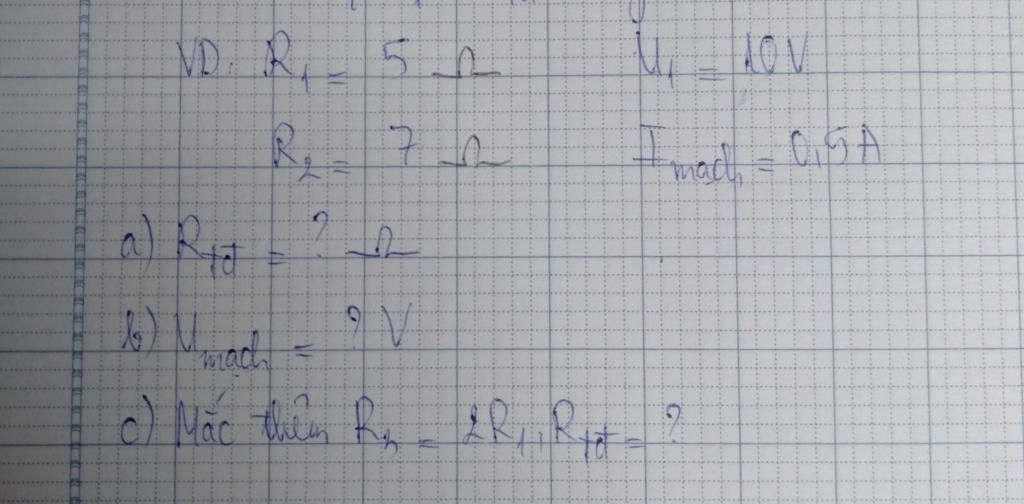 VD. R₁ = 5 Ω U₁ = 10V
R₂ = 7 Ω I mạch = 0,5A
a) Rtđ = ? Ω
b) U mạch = ? V
c) Mắc thêm R₃ = 2R₁, Rtđ = ?